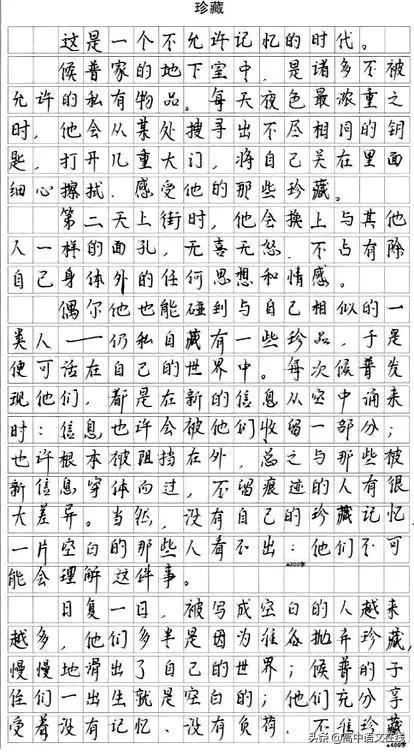 珍藏
这是一个不允许记忆的时代。
候普家的地下室中，是诸多不被
允许的私有物品。每天夜色最浓重之
时，他会从某处搜寻出不尽相同的钥
匙，打开几重大门，将自己关在里面
细心擦拭．感受他的那些珍藏。
第二天上街时，他会换上与其他
人一样的面孔，无喜无怒．不占有除
自己身体外的任何思想和情感。
偶尔他也能碰到与自己相似的一
类人——仍私自藏有一些珍品，于是
便可活在自己的世界中。每次候普发
现他们，都是在新的信息从空中涌来
时：信息也许会被他们收留一部分；
也许根本被阻挡在外，总之与那些被
新信息穿体而过，不留痕迹的人有很
大差异。当然，没有自己的珍藏记忆，
一片空白的那些人看不出：他们不可
能会理解这件事。
日复一日，被写成空白的人越来
越多，他们多半是因为准备抛弃珍藏，
慢慢地滑出了自己的世界；候普的子
侄们一出生就是空白的；他们充分享
受着没有记忆、没有负荷．不准珍藏
头条@高中语文在线